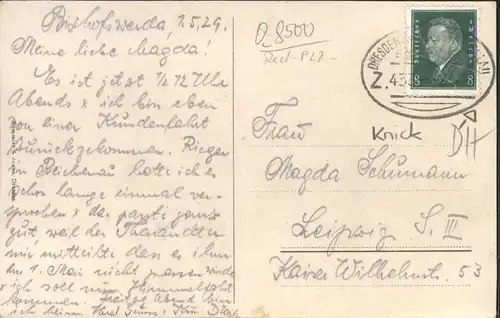 Bischofswerda, 1.5.29.
Meine liebe Magda!
Es ist jetzt ½ 12 Uhr
Abends & ich bin eben
von einer Kundenfahrt
zurückgekommen. Rieger
in Reichenau hatte ich es
schon lange einmal ver-
sprochen & das passte ganz
gut weil der Tharandter
mir mitteilte dass es ihm
am 1. Mai nicht passen würde
& ich soll nun Himmelfahrt
kommen. Freitag Abend bin
ich heim.
O-8500
Rest-PLZ-
DRESDEN
Z
Deutsches Reich
8 8
Knick
DH
Frau
Magda Schumann
Leipzig S. III
Kaiser Wilhelmstr. 53